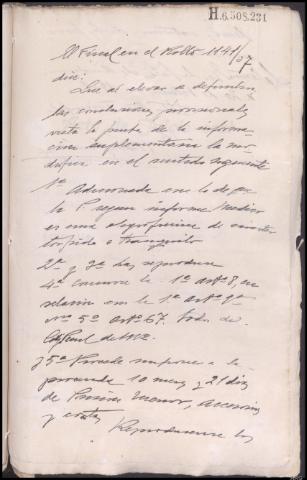 H.6.508.231
El Fiscal en el Rollo 1141/07
dice:
Que al elevar a definitivas
las conclusiones provisionales
vista la prueba de la informa
cion suplementaria la mo
difica en el sentido siguiente
1ª Adicionada en lo de que
la P según informe medico
es una
torpida o tranquila
2ª y 3ª las reproduce
4ª concurre la 1ª artº 8, en
relacion con la 1ª artº 9º
nº 5º artº 67. todos de
C. Penal de 1932.
y 5ª Procede imponer a la
procesada 10 meses y 21 dias
de Prision menor, accesorias
y costas
Reproduciendo los